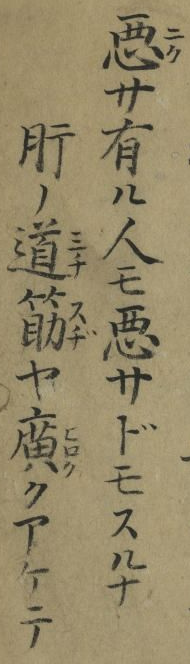 悪サ有ル人モ悪サドモスルナ
肝ノ道筋ヤ廣クアケテ